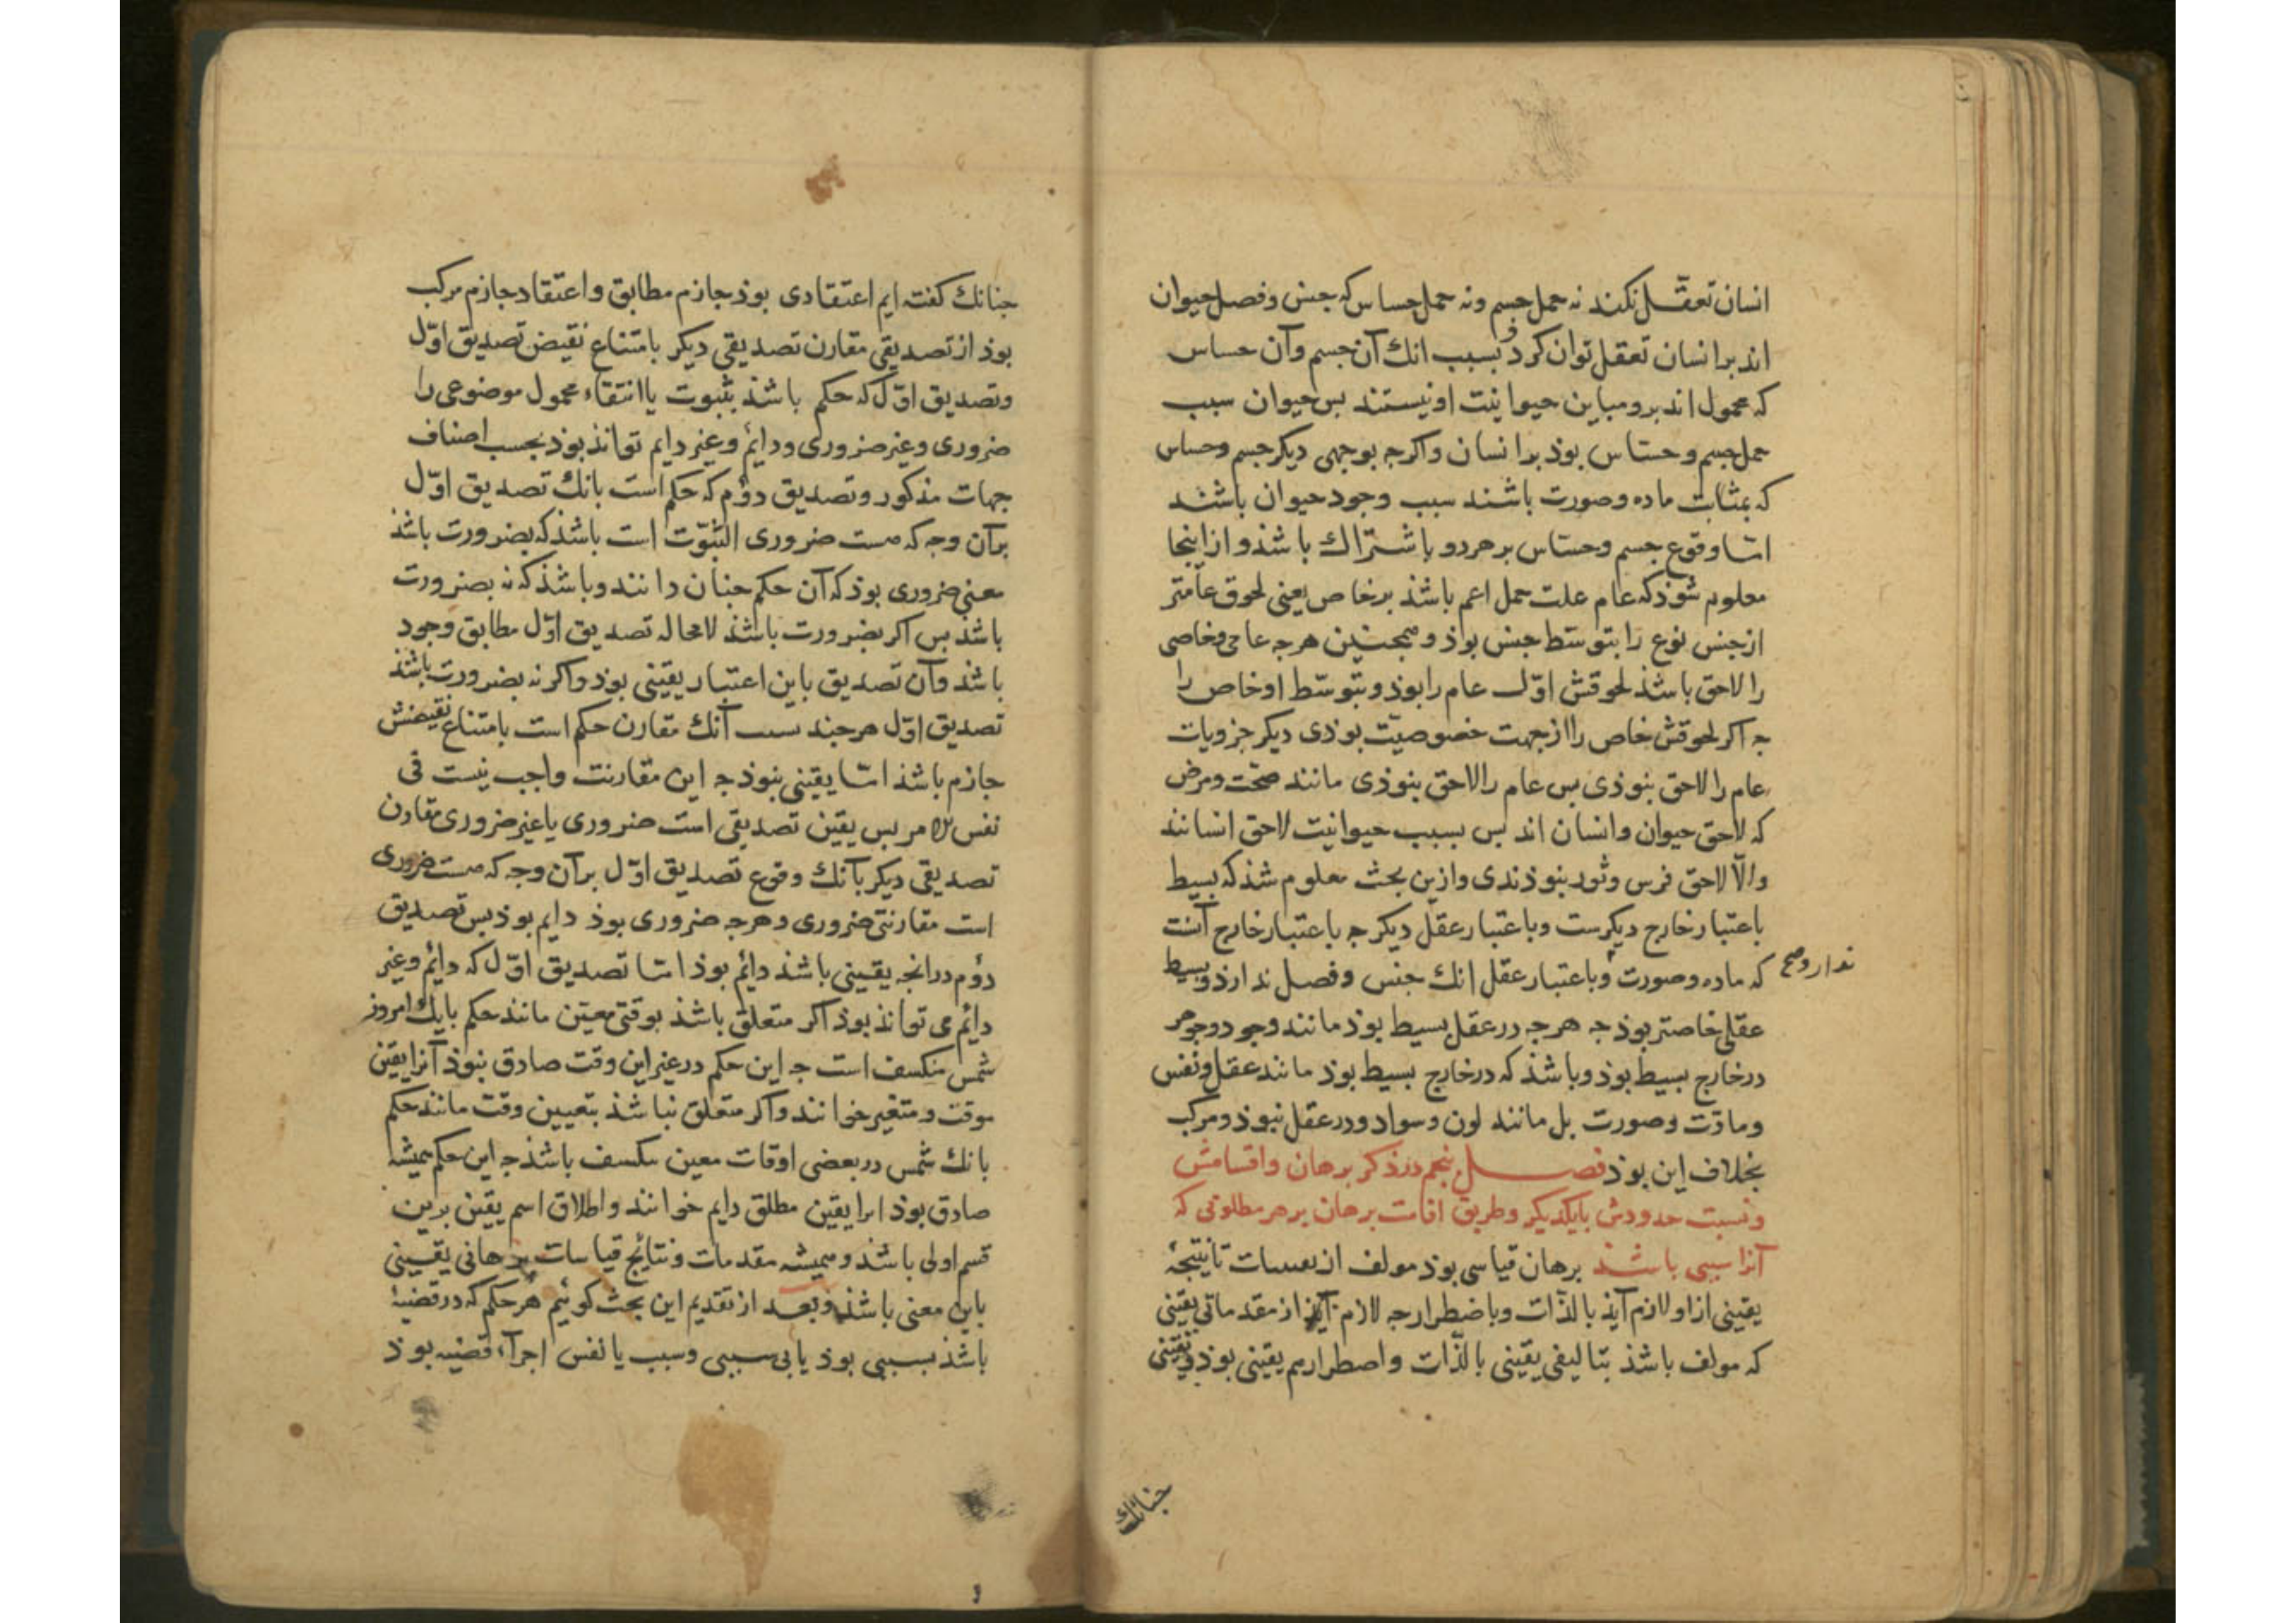 انسان تعقّل نکند نه حمل جسم ونه حمل حساس که جنس وفصل حیوان
اند بر انسان تعقل توان کرد و بسبب انك آن جسم وآن حساس
که محمول اند برو مباین حیوانیت او نیستند بس حیوان سبب
حمل جسم و حسّاس بوذ بر انسان واکرجه بوجهی دیکر جسم وحساس
که بمثابت ماده وصورت باشند سبب وجود حیوان باشند
امّا وقوع جسم وحسّاس بر هر دو باشتراك باشذ و از اینجا
معلوم شوذ که عام علت حمل اعم باشذ بر خاص یعنی لحوق عامّتر
از جنس نوع را بتوسّط جنس بوذ و همجنین هرجه عامی وخاصی
را لاحق باشذ لحوقش اوّل عام را بوذ و بتوسّط او خاص را
جه اکر لحوقش خاص را از جهت خصوصیّت بوذی دیکر جزویات
عام را لاحق نبوذی بس عام را لاحق نبوذی مانند صحّت ومرض
که لاحق حیوان وانسان اند بس بسبب حیوانیت لاحق انسانند
والّا لاحق فرس وثور نبوذندی وازین بحث معلوم شذ که بسیط
باعتبار خارج دیکرست وباعتبار عقل دیکر جه باعتبار خارج آنست
که ماده وصورت وباعتبار عقل انك جنس وفصل ندارذ وبسیط
ندارد صح
عقلی خاصتر بوذ جه هرجه در عقل بسیط بوذ مانند وجود وجوهر
در خارج بسیط بوذ وباشذ که در خارج بسیط بوذ مانند عقل ونفس
ومادّت وصورت بل مانند لون وسواد ودر عقل نبوذ ومرکب
بخلاف این بوذ فصل پنجم در ذکر برهان واقسامش
ونسبت حدودش بایکدیکر وطریق اقامت برهان بر هر مطلوبی که
آنرا سببی باشذ برهان قیاسی بوذ مولف از یقینیات تا نتیجهٔ
یقینی ازاو لازم آیذ بالذّات وباضطرار جه لازم آیذ از مقدماتی یقینی
که مولف باشذ بتالیفی یقینی بالذّات واضطرار هم یقینی بوذ ویقینی
جنانك
جنانك کفته ایم اعتقادی بوذ جازم مطابق واعتقاد جازم مرکب
بوذ از تصدیقی مقارن تصدیقی دیکر بامتناع نقیض تصدیق اوّل
وتصدیق اوّل که حکم باشذ بثبوت یا انتفاء محمول موضوعی را
ضروری وغیر ضروری ودایم وغیر دایم تواند بوذ بحسب اصناف
جهات مذکور وتصدیق دوّم که حکم است بانك تصدیق اوّل
بر آن وجه که هست ضروری الثبوت است باشذ که بضرورت باشذ
معنی ضروری بوذ که آن حکم جنان دانند وباشذ که نه بضرورت
باشذ بس اکر بضرورت باشذ لامحاله تصدیق اوّل مطابق وجود
باشذ وآن تصدیق باین اعتبار یقینی بوذ واکر نه بضرورت باشذ
تصدیق اوّل هرجند بسبب آنك مقارن حکم است بامتناع نقیضش
جازم باشذ امّا یقینی نبوذ جه این مقارنت واجب نیست فی
نفس الامر بس یقین تصدیقی است ضروری یا غیر ضروری مقارن
تصدیقی دیکر بآنك وقوع تصدیق اوّل بر آن وجه که هست ضروری
است مقارنتی ضروری وهرجه ضروری بوذ دایم بوذ بس تصدیق
دوّم در انجه یقینی باشذ دائم بوذ امّا تصدیق اوّل که دایم وغیر
دائم می تواند بوذ اکر متعلق باشذ بوقتی معیّن مانند حکم بانك امروز
شمس منکسف است جه این حکم در غیر این وقت صادق نبوذ آنرا یقین
موقت ومتغیر خوانند واکر متعلق نباشذ بتعیین وقت مانند حکم
بانك شمس در بعضی اوقات معین منکسف باشذ جه این حکم همیشه
صادق بوذ انرا یقین مطلق دایم خوانند واطلاق اسم یقین برین
قسم اولی باشذ وهمیشه مقدمات ونتایج قیاسات برهانی یقینی
باین معنی باشذ وبعد از تقدیم این بحث کوئیم هر حکم که در قضیهٔ
باشذ بسببی بوذ یا بی سببی وسبب یا نفس اجزآء قضیه بوذ